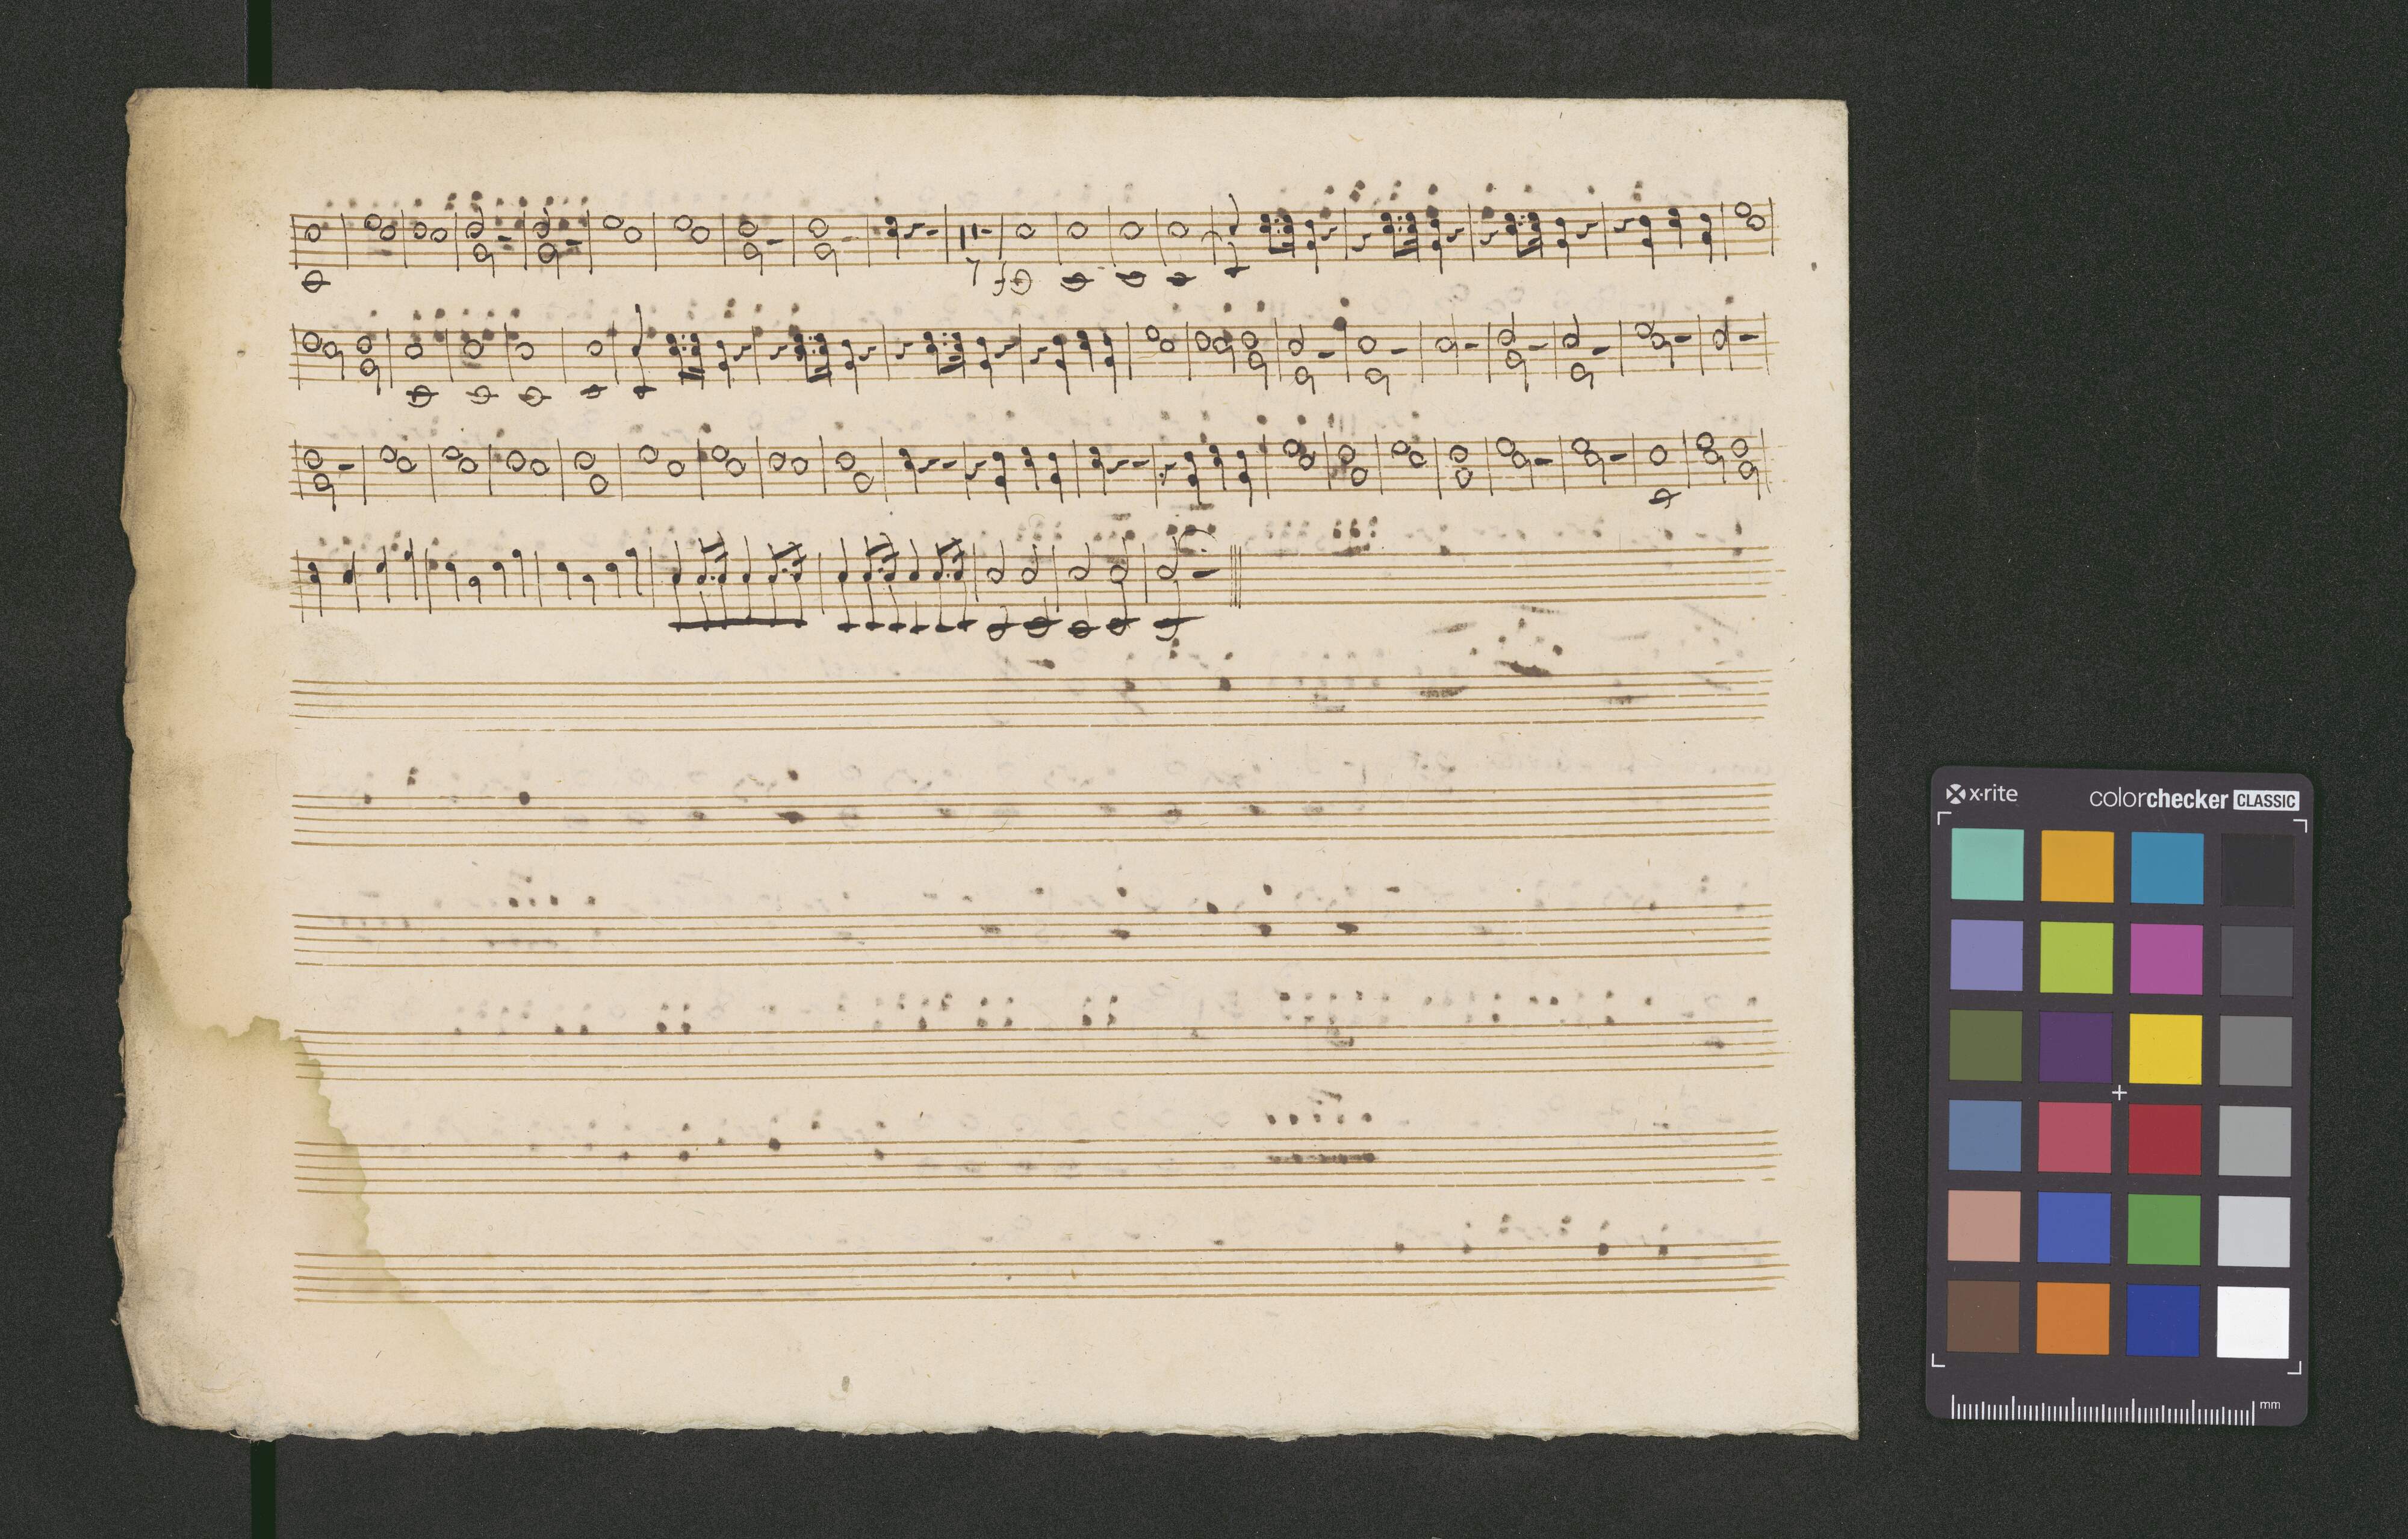 7 f
x-rite colorchecker CLASSIC
mm